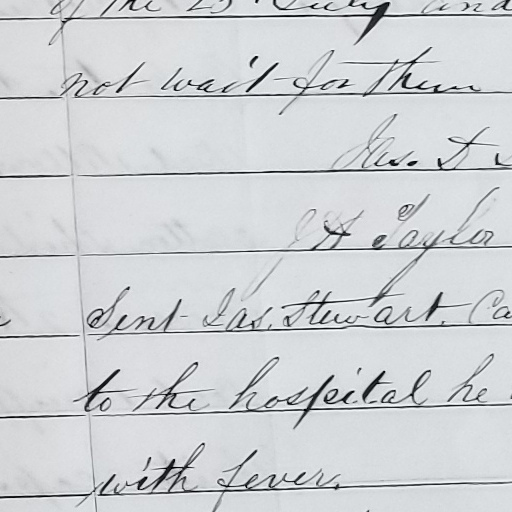 of the 25 July and
not wait for them
Jas. D
J H Taylor
Sent Jas. Stewart. Ca
to the hospital he
with fever.